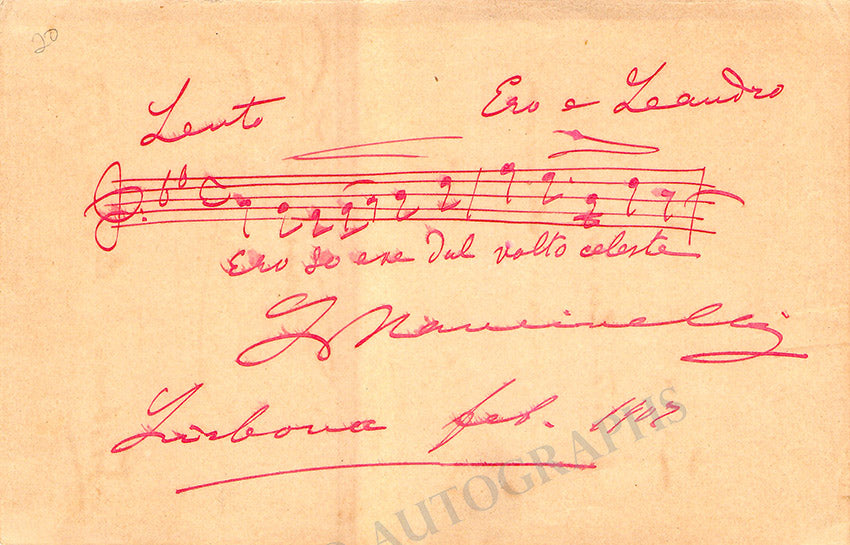 20
Lento Ero e Leandro
Ero soave dal volto celeste
L Mancinelli
Lisbona feb.
AUTOGRAPHS